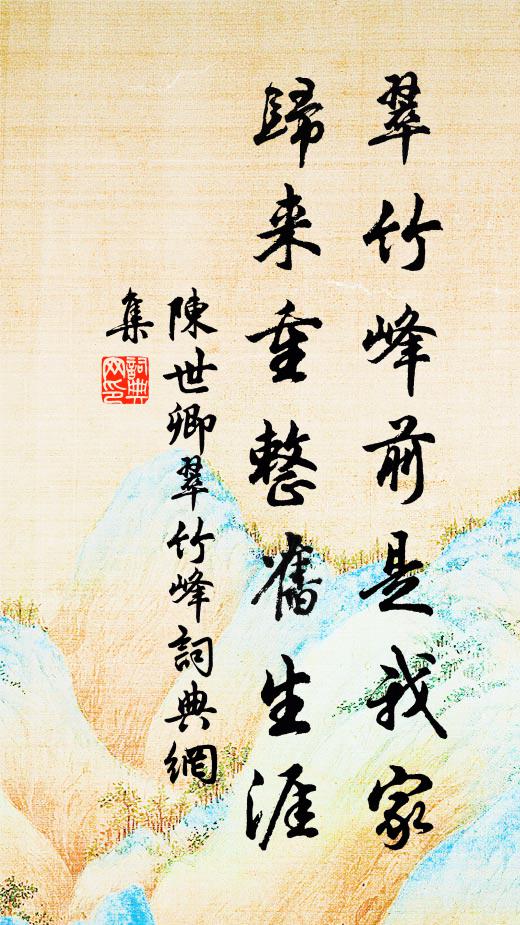 翠竹峰前是我家
歸来重整舊生涯
陳世卿翠竹峰詞典網
集
詞典
网印